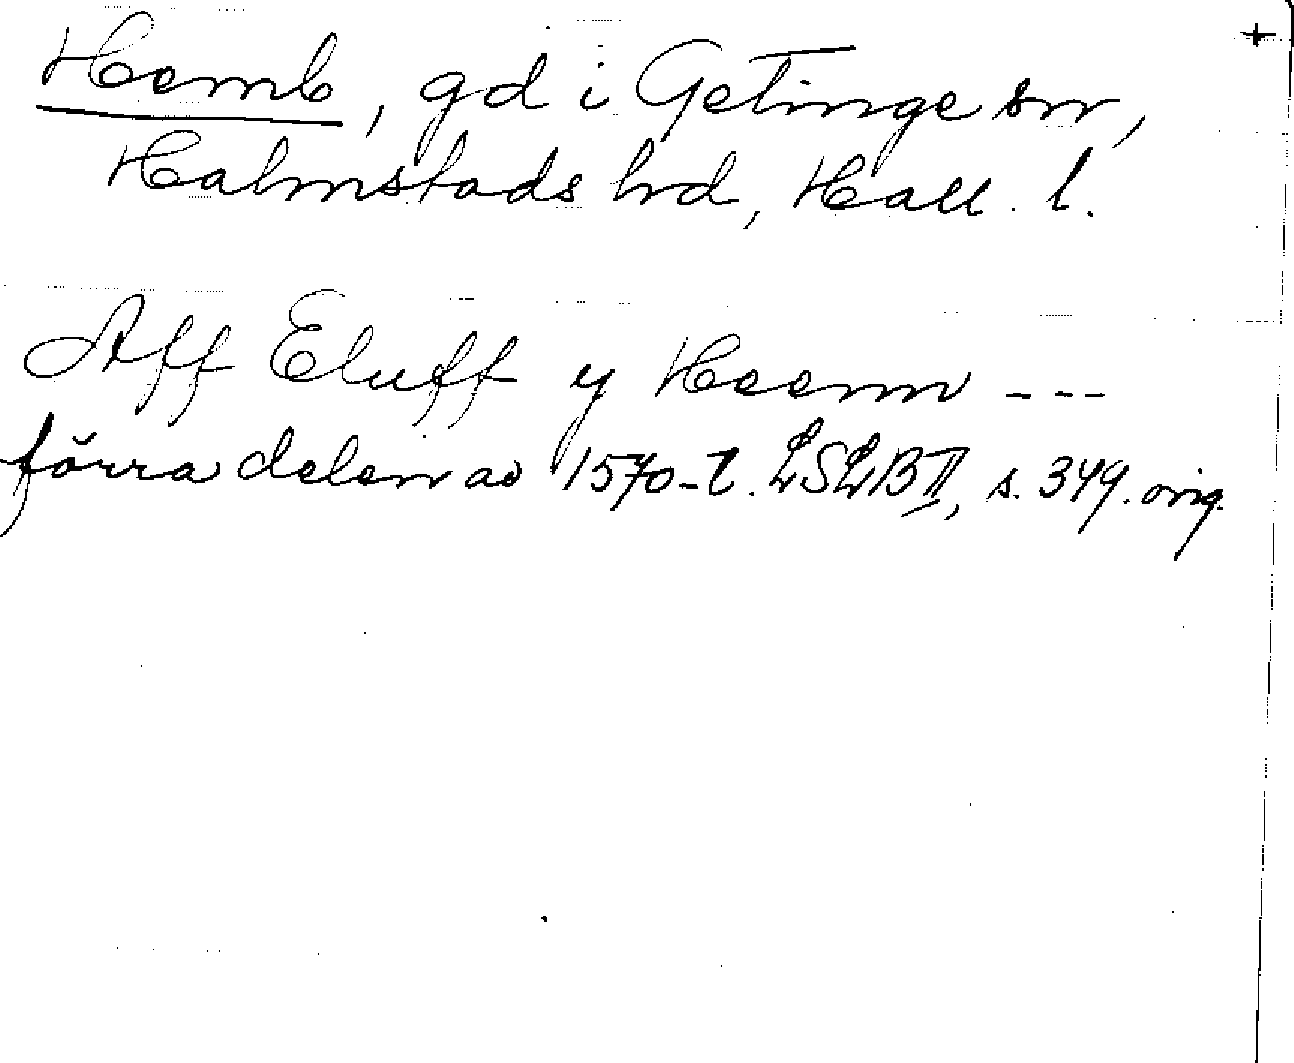 +
Hemb, gd i Getinge sn,
Halmstads hd, Hall. l.
Aff Eluff y Heem ---
förra delen av 1570-t. LSLB II, s. 349. orig.